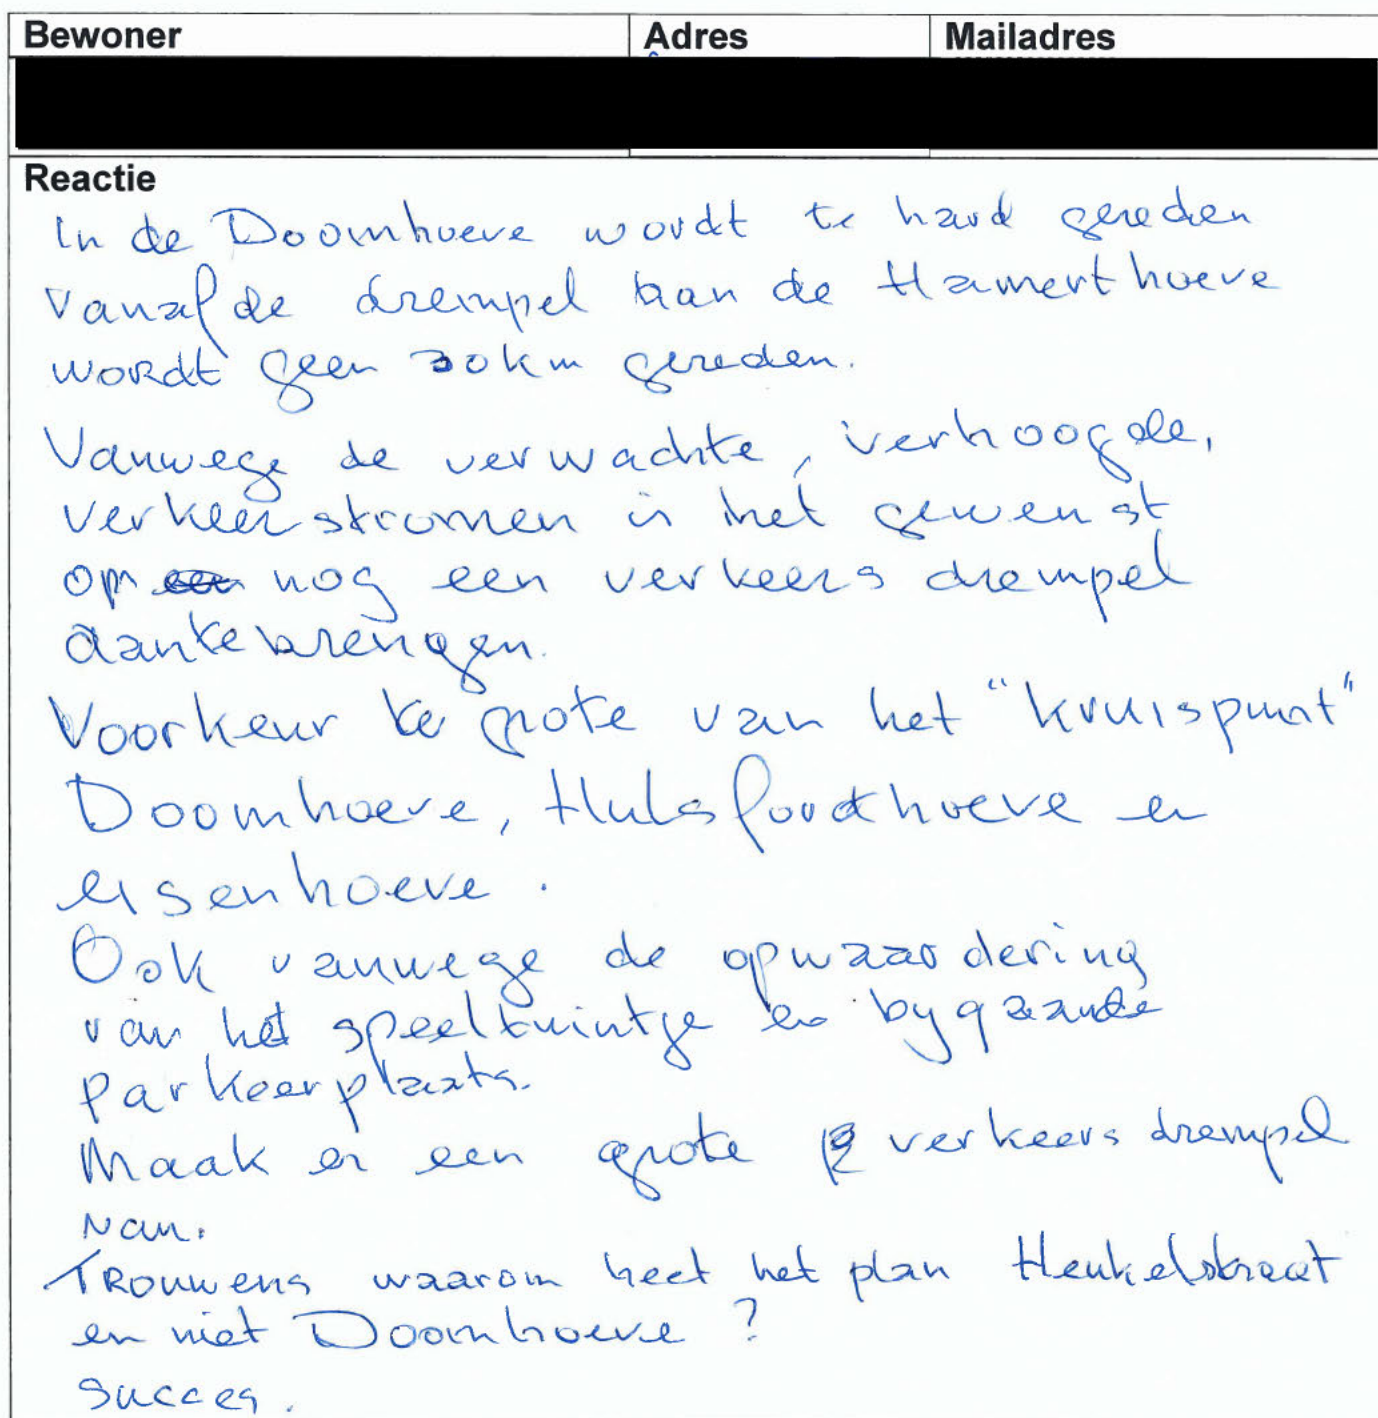 Bewoner Adres Mailadres
Reactie
In de Doornhoeve wordt te hard gereden
vanaf de drempel aan de Hamerthoeve
wordt geen 30km gereden.
Vanwege de verwachte, verhoogde,
verkeerstromen is het gewenst
om nog een verkeers drempel
aantebrengen.
Voorkeur te grote van het "kruispunt"
Doornhoeve, Hulsfoordhoeve en
eisenhoeve.
Ook vanwege de opwaardering
van het speeltuintje en bygaande
parkeerplaats.
Maak er een grote verkeers drempel
van.
Trouwens waarom heet het plan Henkelstraat
en niet Doornhoeve?
succes.